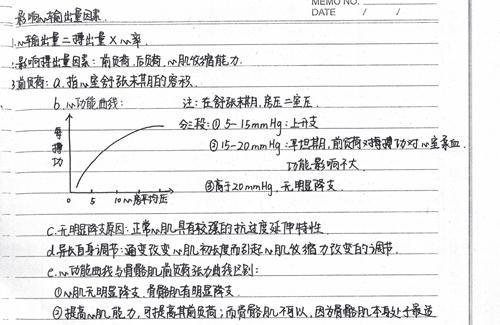 MEMO NO.
DATE / /
影响心输出量因素.
1.心输出量=搏出量×心率.
2.影响搏出量因素:前负荷,后负荷,心肌收缩能力.
3前负荷:a.指心室舒张末期的容积.
b.心功能曲线: 注:在舒张末期,房压=室压.
每搏功
0 5 10 心房平均压
分三段:①5-15mmHg:上升支
②15-20mmHg:平坦期,前负荷对搏功对心室泵血
功能影响不大.
③高于20mmHg,无明显降支.
c.无明显降支原因:正常心肌具有较强的抗过度延伸特性.
d.异长自身调节:通变改变心肌初长度而引起心肌收缩力改变的调节.
e.心功能曲线与骨骼肌前负荷张力曲线区别:
①心肌无明显降支.骨骼肌有明显降支.
②提高心肌能力,可提高其前负荷;而骨骼肌不可以,因为骨骼肌本身处于最适